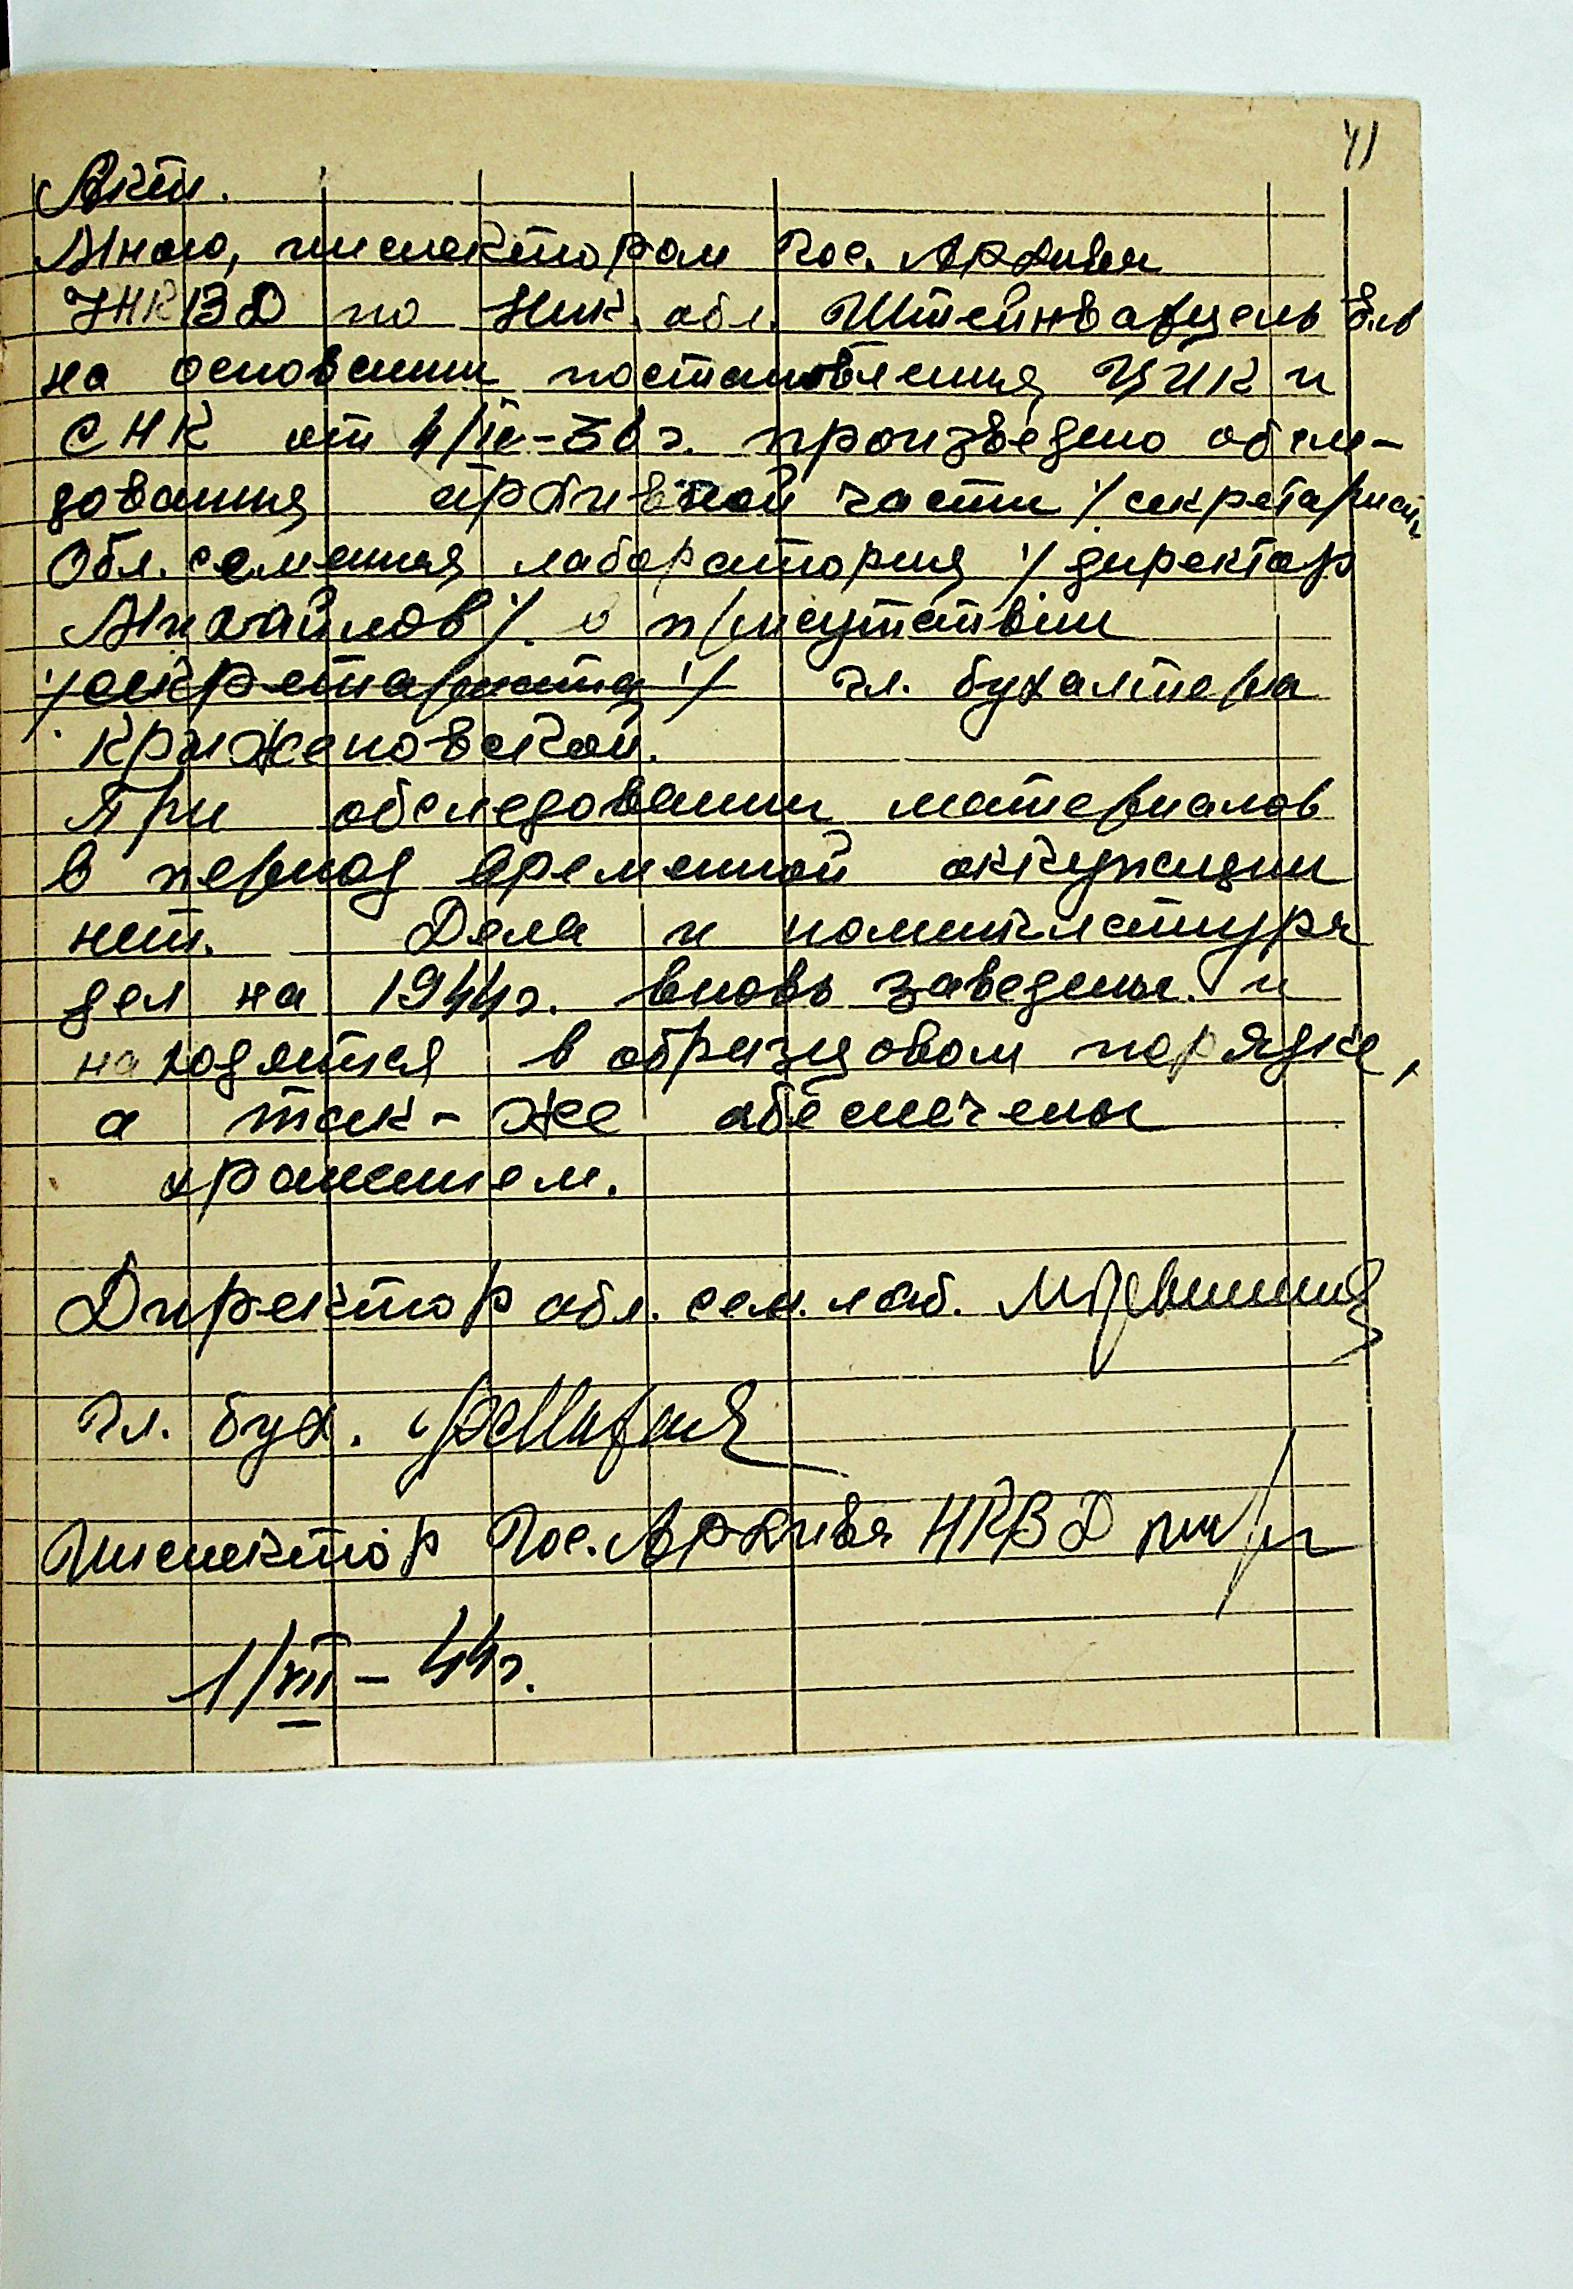 41
Акт.
Мною, инспектором Гос. Архива
УНКВД по Ник. обл. Штейнварцель
на основании постановления ЦИК и
СНК от 4/II-36 г. произведено обсле-
дования архивной части % секретариат
Обл. семенная лаборатория % директор
Михайлов %. в присутствии
% секретариата % гл. бухалтера
Крыжеповской.
При обследовании материалов
в период временной оккупации
нет. Дела и номенклатура
дел на 1944 г. вновь заведены. и
находятся в образцовом порядке,
а так-же обеспечены
хранением.
Директор обл. сем. лаб.
Гл. бух.
Инспектор Гос. Архива НКВД
1/VII - 44 г.